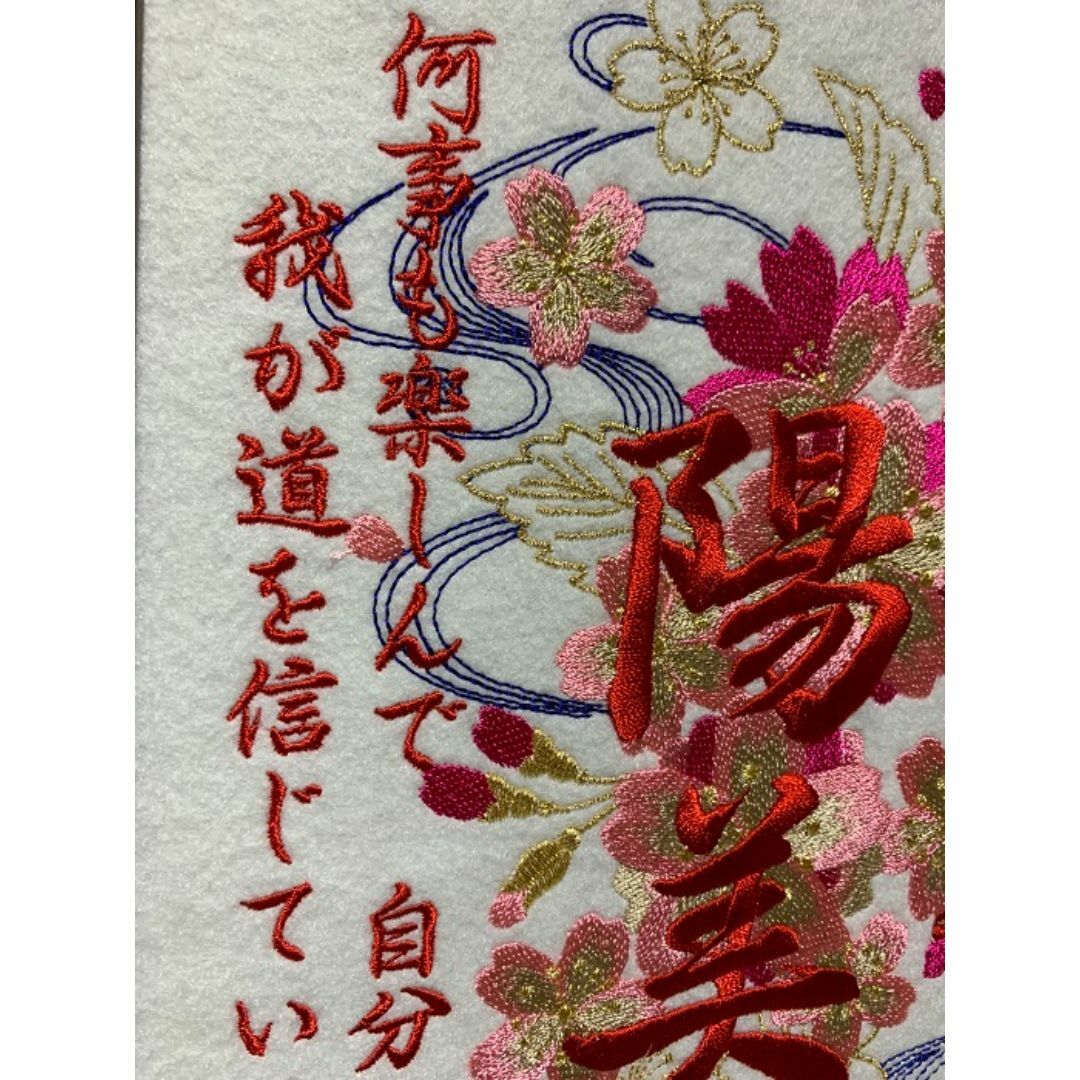 陽美
何事も楽しんで 自分
我が道を信じてい